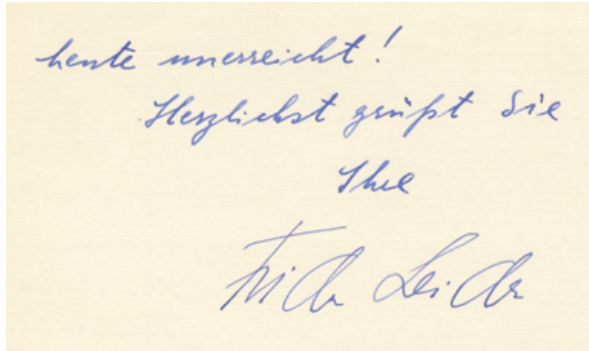 heute unerreicht!
Herzlichst grüßt Sie
Ihre
Frida Leider